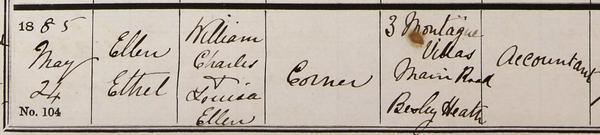 1885
May
24
No. 104
Ellen
Ethel
William
Charles
&
Louisa
Ellen
Corner
3 Montague
Villas
Main Road
Bexley Heath
Accountant